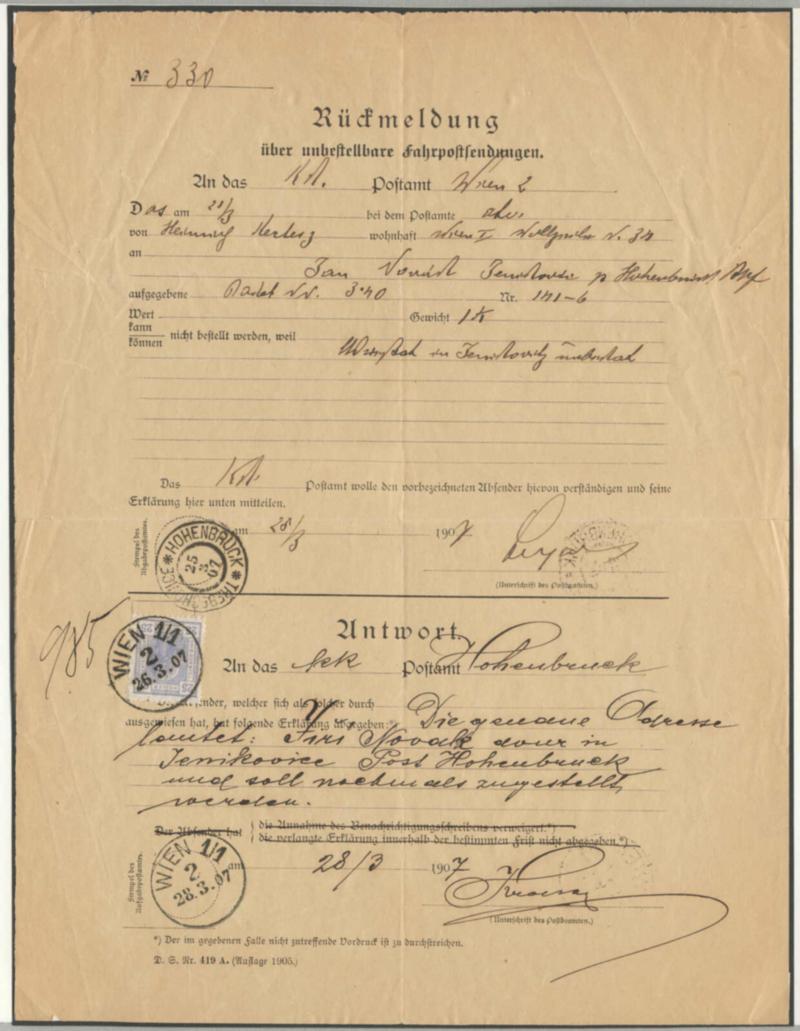 № 330
Rückmeldung
über unbestellbare Fahrpostsendungen.
An das Postamt Wien 2
Das am 21/3 bei dem Postamte
von Heinrich Kertesz wohnhaft Wien I
an
Jan p Hohenbruck
aufgegebene Nr. 141-6
Wert Gewicht
kann
können nicht bestellt werden, weil
in
Das Postamt wolle den vorbezeichneten Absender hievon verständigen und seine
Erklärung hier unten mitteilen.
Stempel des Abgabepostamtes.
HOHENBRUCK 25 3 07 TŘEBECHOVICE
am 190 7
(Unterschrift des Postbeamten.)
985
Antwort
WIEN 1/1 2 26.3.07
An das kk Postamt Hohenbruck
welcher sich als solcher durch
ausgewiesen hat, hat folgende Erklärung abgegeben:*) Die genaue Adresse
lautet: Jiri Novak dour in
Jenikovice Post Hohenbruck
und soll nochmals zugestellt
werden.
Der Absender hat die Annahme des Benachrichtigungsschreibens verweigert.*)
die verlangte Erklärung innerhalb der bestimmten Frist nicht abgegeben.*)
Stempel des Aufgabepostamtes.
WIEN 1/1 2 28.3.07
am 28/3 190 7
(Unterschrift des Postbeamten.)
*) Der im gegebenen Falle nicht zutreffende Vordruck ist zu durchstreichen.
D. S. Nr. 419 A. (Auflage 1905.)